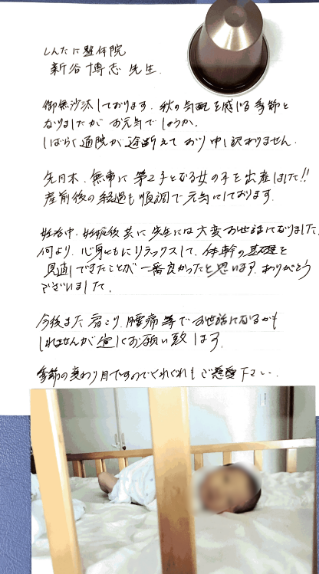 しんたに整体院
新谷 博志 先生.
御無沙汰しております. 秋の気配を感じる季節と
なりましたが お元気でしょうか.
しばらく通院が途断えており申し訳ありません.
先日, 無事に第2子となる女の子を出産しました!!
産前後の経過も順調で元気にしております.
妊娠中, 妊娠後 共に先生には大変お世話になりました.
何より, 心身ともにリラックスして, 体幹の基礎を
見直しできたことが一番良かったと思います. ありがとう
ございました.
今後また 肩こり, 腰痛等でお世話になるかも
しれませんが宜しくお願い致します.
季節の変わり目ですのでくれぐれもご自愛下さい.